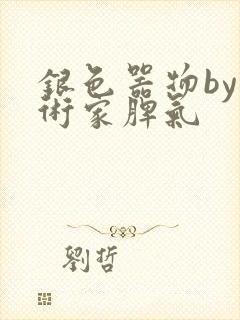 銀色器物by
術家脾氣
劉哲